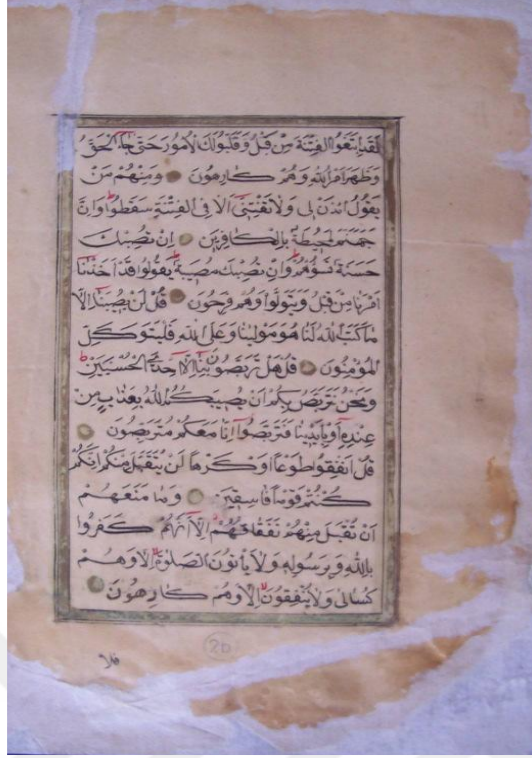 لَقَدِ ابْتَغَوُا الْفِتْنَةَ مِنْ قَبْلُ وَقَلَّبُوا لَكَ الْأُمُورَ حَتَّى جَاءَ الْحَقُّ
وَظَهَرَ أَمْرُ اللَّهِ وَهُمْ كَارِهُونَ وَمِنْهُمْ مَنْ
يَقُولُ ائْذَنْ لِي وَلَا تَفْتِنِّي أَلَا فِي الْفِتْنَةِ سَقَطُوا وَإِنَّ
جَهَنَّمَ لَمُحِيطَةٌ بِالْكَافِرِينَ إِنْ تُصِبْكَ
حَسَنَةٌ تَسُؤْهُمْ وَإِنْ تُصِبْكَ مُصِيبَةٌ يَقُولُوا قَدْ أَخَذْنَا
أَمْرَنَا مِنْ قَبْلُ وَيَتَوَلَّوْا وَهُمْ فَرِحُونَ قُلْ لَنْ يُصِيبَنَا إِلَّا
مَا كَتَبَ اللَّهُ لَنَا هُوَ مَوْلَينَا وَعَلَى اللَّهِ فَلْيَتَوَكَّلِ
الْمُؤْمِنُونَ قُلْ هَلْ تَرَبَّصُونَ بِنَا إِلَّا إِحْدَى الْحُسْنَيَيْنِ
وَنَحْنُ نَتَرَبَّصُ بِكُمْ أَنْ يُصِيبَكُمُ اللَّهُ بِعَذَابٍ مِنْ
عِنْدِهِ أَوْ بِأَيْدِينَا فَتَرَبَّصُوا إِنَّا مَعَكُمْ مُتَرَبِّصُونَ
قُلْ أَنْفِقُوا طَوْعًا أَوْ كَرْهًا لَنْ يُتَقَبَّلَ مِنْكُمْ إِنَّكُمْ
كُنْتُمْ قَوْمًا فَاسِقِينَ وَمَا مَنَعَهُمْ
أَنْ تُقْبَلَ مِنْهُمْ نَفَقَاتُهُمْ إِلَّا أَنَّهُمْ كَفَرُوا
بِاللَّهِ وَبِرَسُولِهِ وَلَا يَأْتُونَ الصَّلَوةَ إِلَّا وَهُمْ
كُسَالَى وَلَا يُنْفِقُونَ إِلَّا وَهُمْ كَارِهُونَ
20
فلا